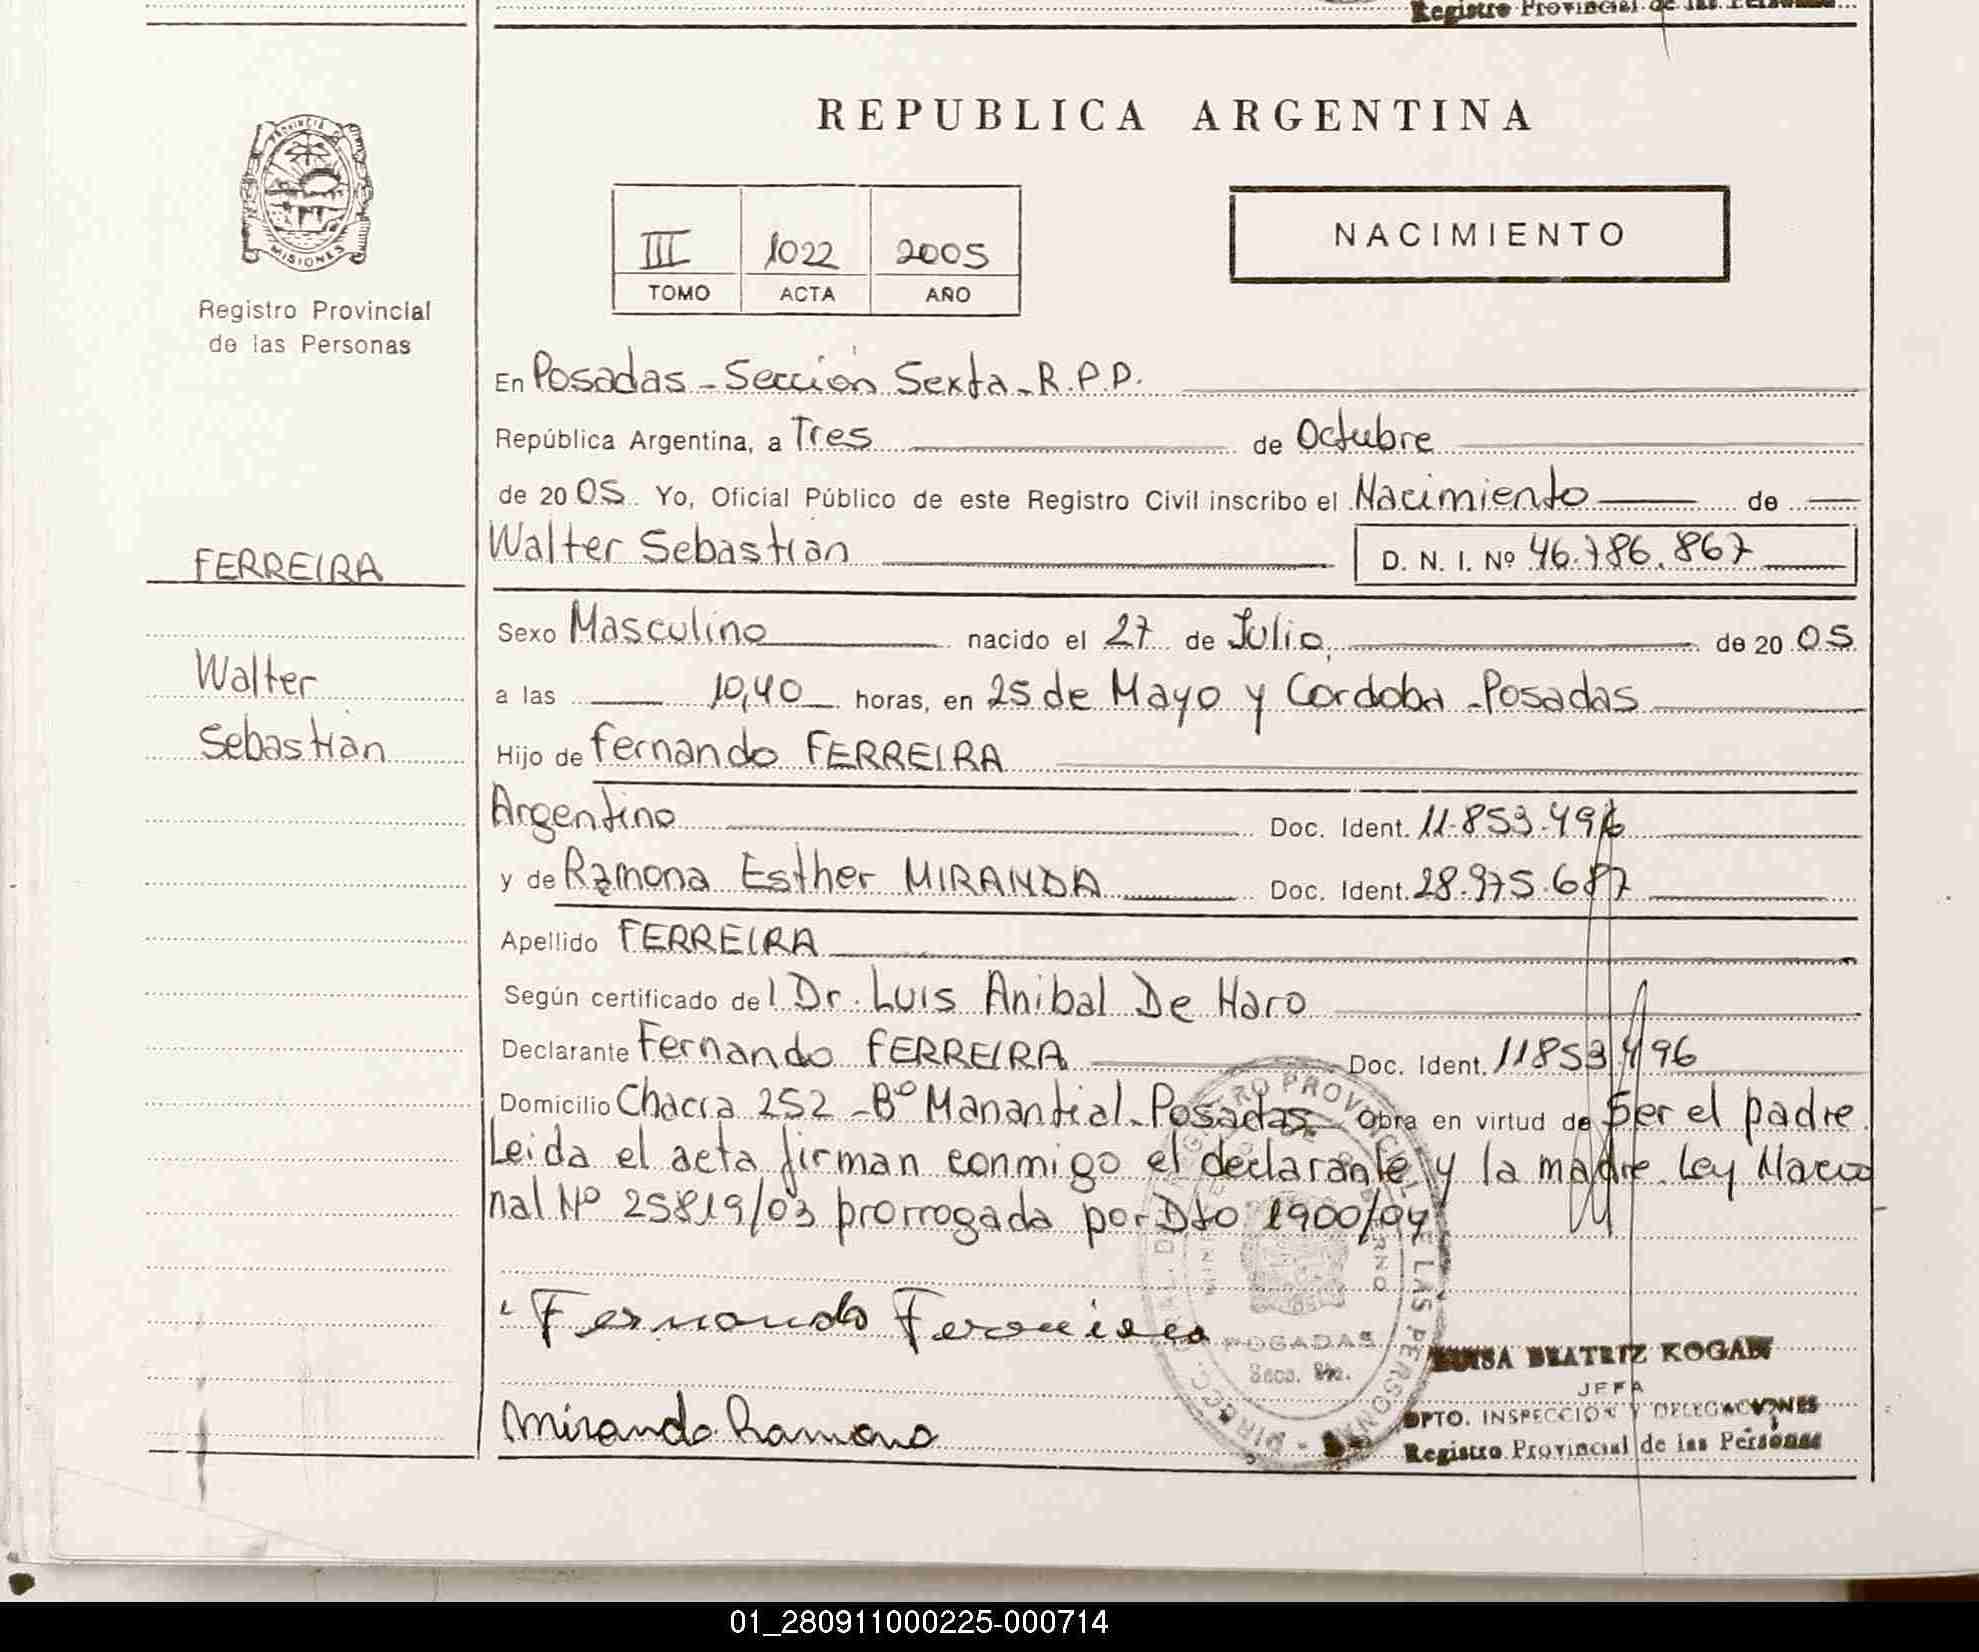 Registro Provincial de las Personas
REPUBLICA ARGENTINA
PROVINCIA DE
MISIONES
Registro Provincial
de las Personas
III 1022 2005
TOMO ACTA AÑO
NACIMIENTO
En Posadas - Sección Sexta - R.P.P.
República Argentina, a Tres de Octubre
de 20 05 Yo, Oficial Público de este Registro Civil inscribo el Nacimiento de
FERREIRA
Walter Sebastian D. N. I. Nº 46.786.867
Sexo Masculino nacido el 27 de Julio, de 20 05
Walter
Sebastian
a las 10,40 horas, en 25 de Mayo y Cordoba - Posadas
Hijo de Fernando FERREIRA
Argentino Doc. Ident. 11.853.496
y de Ramona Esther MIRANDA Doc. Ident. 28.975.687
Apellido FERREIRA
Según certificado del Dr. Luis Anibal De Haro
Declarante Fernando FERREIRA Doc. Ident. 11853496
Domicilio Chacra 252 - Bº Manantial - Posadas Obra en virtud de Ser el padre.
Leida el acta firman conmigo el declarante y la madre. Ley Nacio
nal Nº 25819/03 prorrogada por Dto 1900/04
Fernando Ferreira
POSADAS
Secc. 6ta.
LUISA BEATRIZ KOGAN
JEFA
DPTO. INSPECCION Y DELEGACIONES
Registro Provincial de las Personas
Miranda Ramona
01_280911000225-000714